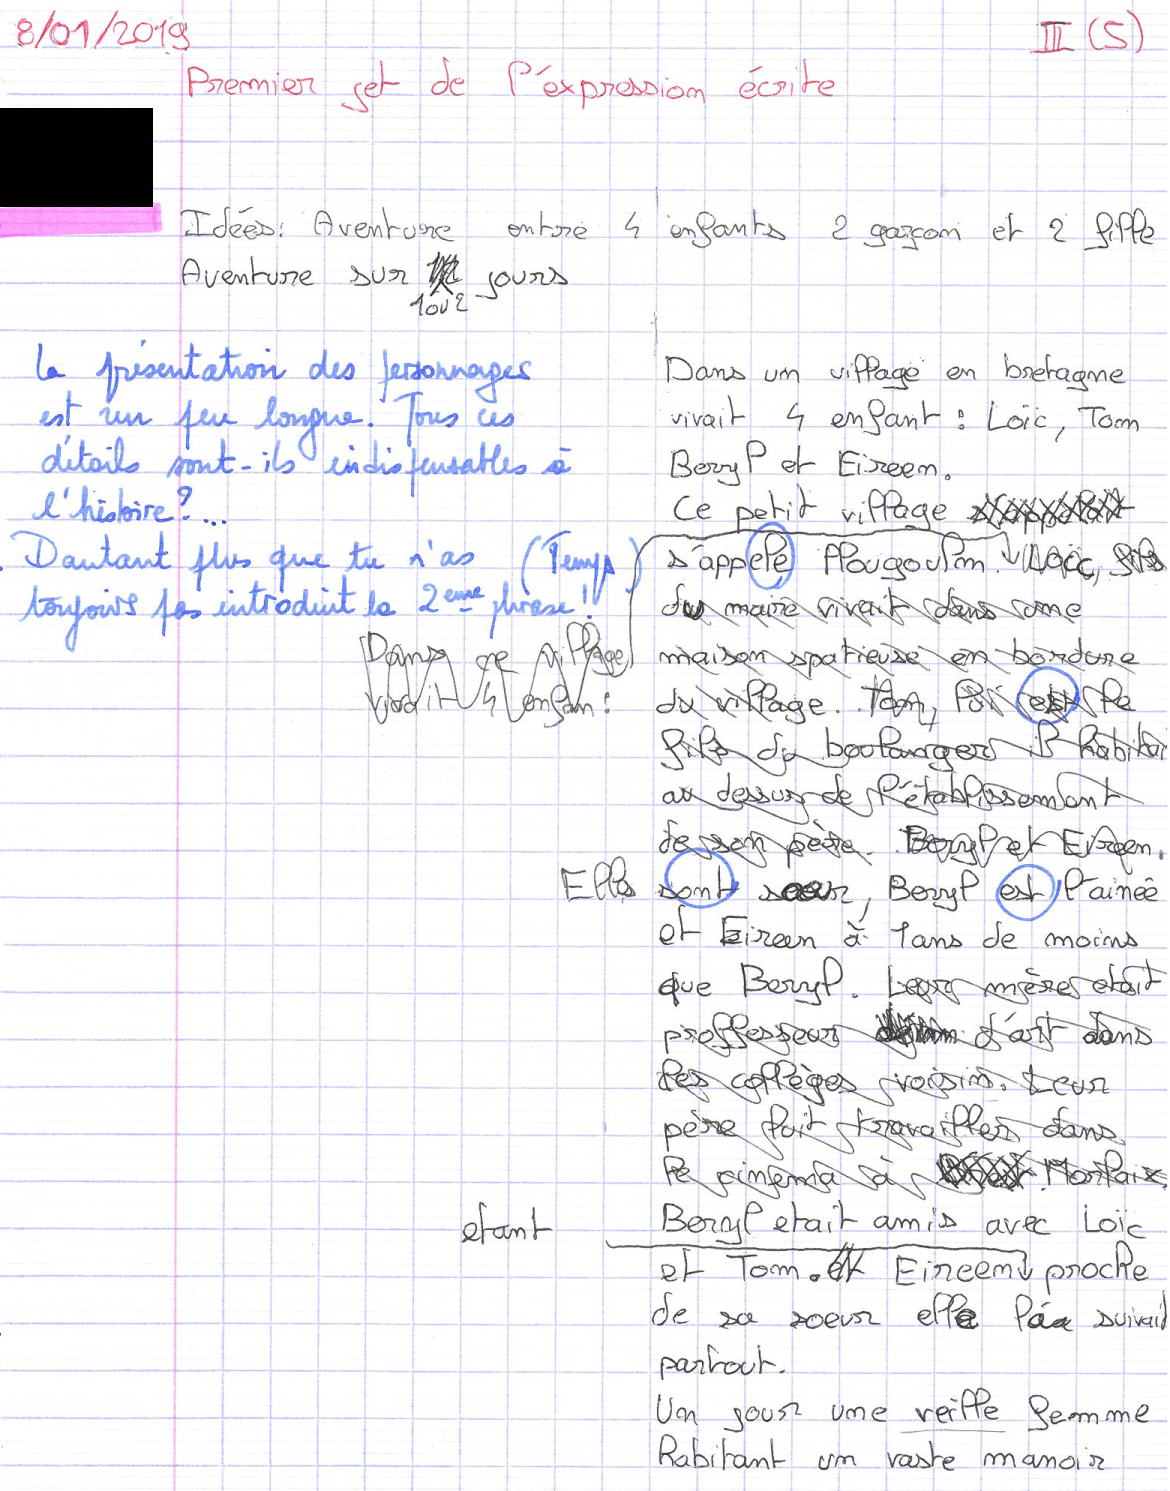 8/01/2019
III (S)
Premier jet de l'éxpression écrite
Idées: Aventure entre 4 enfants 2 garçon et 2 fille
Aventure sur jours
1ou2
La présentation des personnages
est un peu longue. Tous ces
détails sont-ils indispensables à
l'histoire?...
Dautant plus que tu n'as (Temps)
toujours pas introduit la 2eme phrase!
Dans ce village
vivait 4 enfan:
Dans un village en bretagne
vivait 4 enfant: Loïc, Tom
Beryl et Eireen.
Ce petit village s'appelait
s'appelé Plougoulm. Loïc, fils
du maire vivait dans une
maison spatieuse en bordure
du village. Tom, lui est le
fils du boulangers il habitai
au dessus de l'établissemant
de son père. Beryl et Eireen.
Elles sont sœur, Beryl est l'ainée
et Eireen à 1ans de moins
que Beryl. Leur mères etait
proffesseur d'art dans
les collèges voisins. Leur
père lui travailles dans
le cinema à Morlaix.
etant
Beryl etait amis avec Loïc
et Tom. et Eireen proche
de sa soeur elle la suivait
partout.
Un jour une veille femme
habitant un vaste manoir